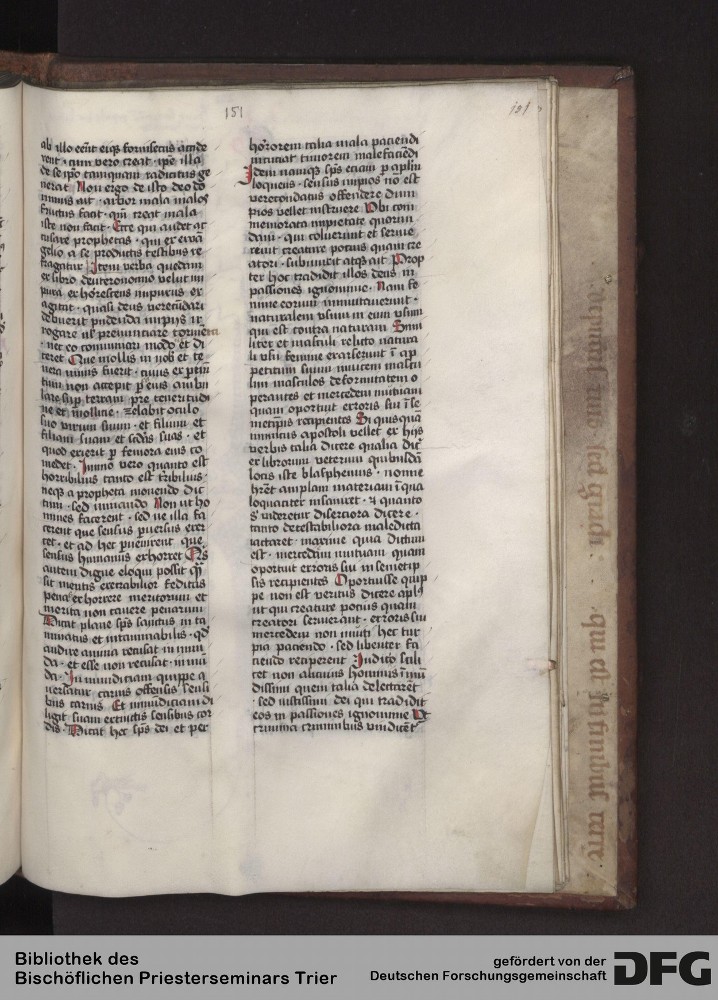 151
ab illo eēnt eiꝰqꝫ forinsecus acade
rent · cum vero creat · ip̄e illa
de se ip̄o tamquam radicitus ge
nerat Non ergo de isto deo do
minus ait · arbor mala malos
fructus facit · qm̄ creat mala
iste non facit · Ecce qui audet ac
cusare prophetas · qui ex evā
gelio a se productis testibus re
fragatur Item verba quedam
ex libro deuteronomio velut im
pura exhorrescens impurus ex
agitat · quasi deus verecūdari
debuerit pudenda impiis ir
rogare ul̓ prenunciare tormēta
· nec eo comminari modo et di
ceret Que mollis in nob̄ et te
nera nimis fuerit · cuius exp̄im
tum non accepit p̄ eius ambu
lare sup̄ terram pre teneritudi
ne et mollicie · zelabit oculo
suo virum suum · et filium et
filiam suam et scd̄as suas · et
quod exierit p̄ femora eius co
medet · Immo vero quanto est
horribilius tanto est t̄ribilius ·
neqꝫ a propheta monendo dic
tum · sed minando Non ut ho
mines facerent · sed ne illa fa
cerent que sensus p̄versus exer
cet · et ad hec p̄venirent que
sensus humanus exhorret Q̄s
autem digne eloqui possit q̄m
sit mentis execrabilior feditas
pena exhorrere meritorum et
merita non cavere penarum
Dicat plane sp̄s sanctus in ta
minatus et intaminabilis · qd̓
audire anima recusat in mun
da · et esse non recusat · in mū
da · In mundiciam quippe a
versatur carnis offensis sensi
bus carnis Et inmundiciam di
ligit suam extinctis sensibus cor
dis · Dicat hec sp̄s dei et per
151
horrorem talia mala paciendi
incuciat timorem malefaciēdi
Idem namqꝫ sp̄s eciam p̄ ap̄lm
loquens · sensus impios nō est
verecondatus offendere dum
pios vellet instruere Ubi com
memorata impietate quorun
dam · qui coluerunt et servie
runt creature pocius quam cre
atori · subiunxit atqꝫ ait Prop
ter hoc tradidit illos deus in
passiones ignominie · Nam fe
mine eorum inmutaverunt ·
naturalem usum in eum usum
qui est contra naturam Simi
liter et masculi relicto natura
li usu femine exarserunt ī ap
petitum suum invicem mascu
lim masculos deformitatem o
perantes et mercedem mutuam
quam oportuit erroris sui ī se
metipsis recipientes Si quisquā
inimicus apostoli vellet ex hijs
verbis talia dicere qualia dic̄
ex librorum veterum quibusdā
locis iste blasphemus · nonne
hr̄et amplam materiam ī qua
loquanter insaniret · ⁊ quanto
s̓ videretur disertiora dicere ·
tanto detestabiliora maledicta
iactaret · maxime quia dictum
est · mercedem mutuam quam
oportuit erroris sui in semetip
sis recipientes Oportuisse quip
pe non est veritus dicere apl̄s
ut qui creature pocius quam
creatori servierant · erroris sui
mercedem non inviti hec tur
pia paciendo · sed libenter fa
ciendo reciperent Iudicio scili
cet non alicuius hominis īmū
dissimi quem talia delectarēt
· sed iustissimi dei qui tradidit
eos in passiones ignominie Ut
crimina criminibus vindicēt̄
Bibliothek des
Bischöflichen Priesterseminars Trier
gefördert von der
Deutschen Forschungsgemeinschaft
DFG